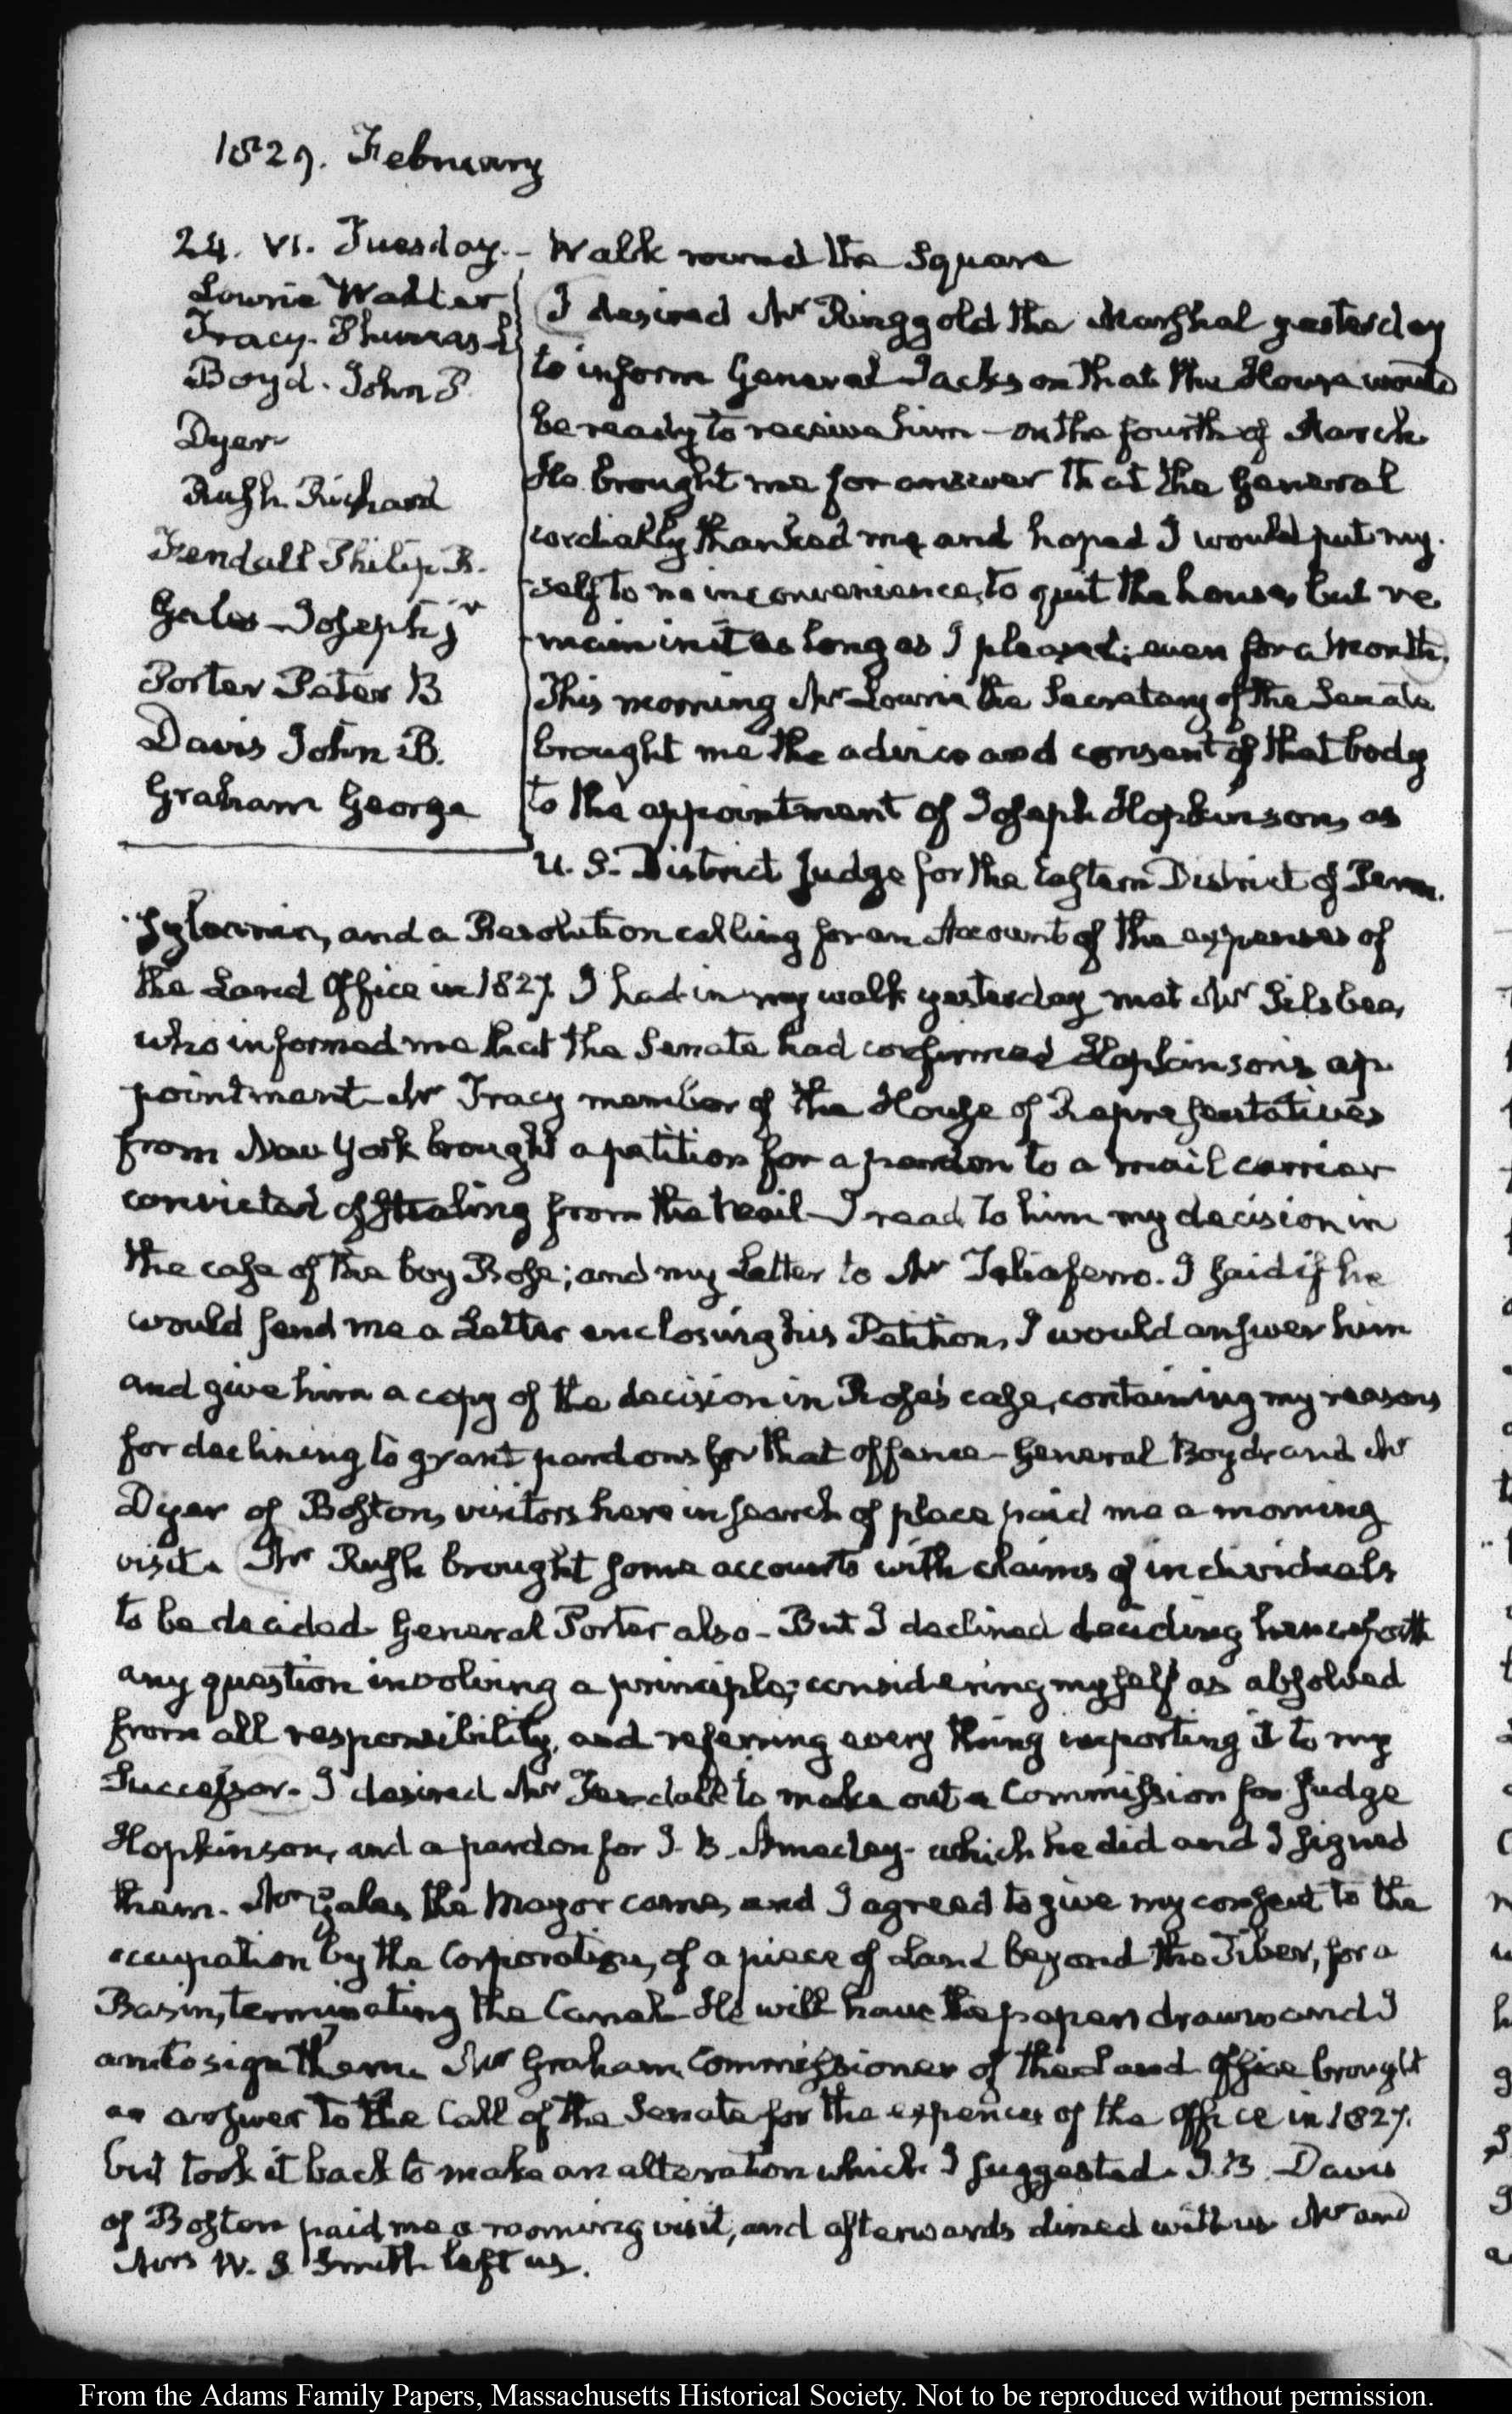 1829. February
24. VI. Tuesday. - Walk round the Square
Lowrie Walter
Tracy. Thomas
Boyd. John P.
Dyer
Rush. Richard
Fendall Philip R.
Gales Joseph jr
Porter Peter B
Davis John B.
Graham George
I desired Mr Ringgold the Marshal yesterday
to inform General Jackson that the House would
be ready to receive him — on the fourth of March
He brought me for answer that the General
cordially thanked me and hoped I would put my-
self to no inconvenience, to quit the house, but re
main in it as long as I pleased; even for a Month.
This morning Mr Lowrie the Secretary of the Senate
brought me the advice and consent of that body
to the appointment of Joseph Hopkinson, as
U. S. District Judge for the Eastern District of Penn.
sylvania, and a Resolution calling for an Account of the expenses of
the Land Office in 1827. I had in my walk yesterday met Mr Silsbee,
who informed me that the Senate had confirmed Hopkinson's ap
pointment. Mr Tracy member of the House of Representatives
from New York brought a petition for a pardon to a mail carrier
convicted of stealing from the Mail — I read to him my decision in
the case of the boy Rose; and my Letter to Mr Taliaferro. I said if he
would send me a Letter enclosing his Petition, I would answer him
and give him a copy of the decision in Rose's case, containing my reasons
for declining to grant pardons for that offence — General Boyd and Mr
Dyer of Boston, visitors here in search of place paid me a morning
visit. Mr Rush brought some accounts with claims of individuals
to be decided. General Porter also — But I declined deciding henceforth
any question involving a principle; considering myself as absolved
from all responsibility, and referring every thing importing it to my
Successor. I desired Mr Fendall to make out a Commission for Judge
Hopkinson, and a pardon for J. B. which he did and I signed
them. Mr Gales the Mayor came, and I agreed to give my consent to the
occupation by the Corporation, of a piece of Land beyond the Tiber, for a
Basin, terminating the Canal. He will have the papers drawn and I
am to sign them. Mr Graham Commissioner of the Land Office brought
an answer to the Call of the Senate for the expences of the Office in 1827.
but took it back to make an alteration which I suggested. J. B. Davis
of Boston paid me a morning visit, and afterwards dined with us Mr and
Mrs W. S. Smith left us.
From the Adams Family Papers, Massachusetts Historical Society. Not to be reproduced without permission.